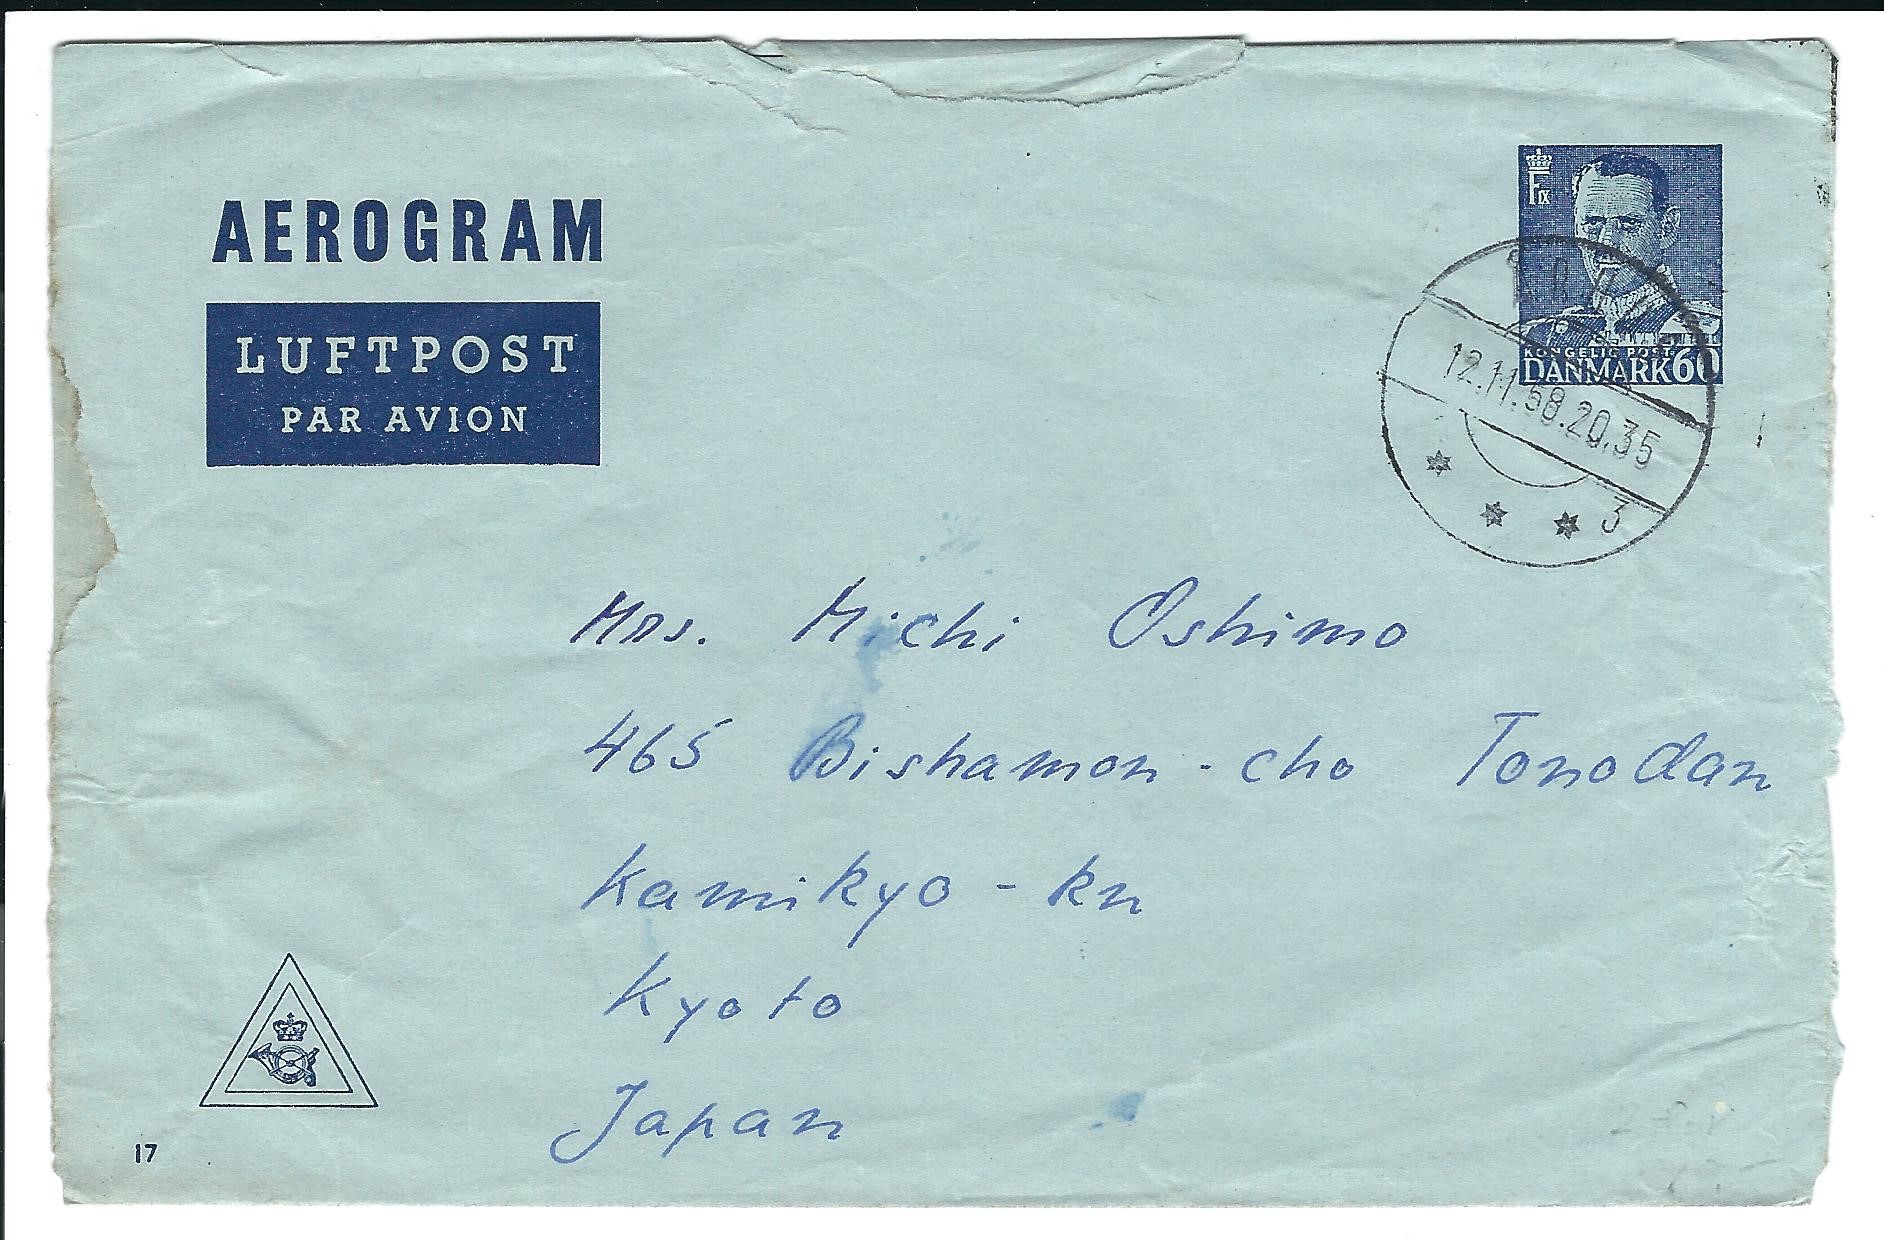 AEROGRAM
LUFTPOST
PAR AVION
F IX
KONGELIG POST
DANMARK 60
12.11.58.20,35
3
Mrs. Michi Oshimo
465 Bishamon-cho Tonodan
Kamikyo-ku
Kyoto
Japan
17